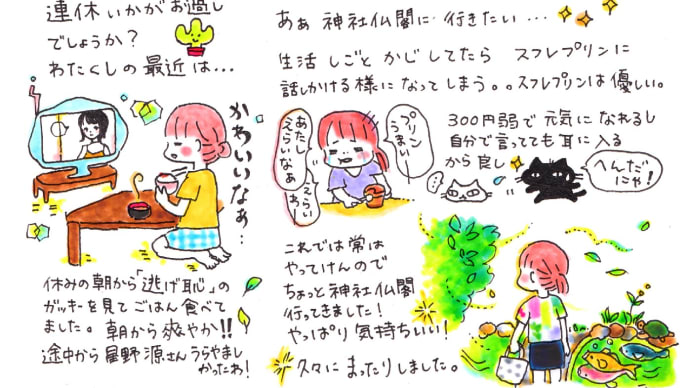 連休いかがお過し
でしょうか?
わたくしの最近は...
かわいいなぁ...
休みの朝から「逃げ恥」の
ガッキーを見てごはん食べて
ました。朝から爽やか!!
途中から星野源さんうらやまし
かったわ!
あぁ 神社仏閣に行きたい...
生活 しごと かじしてたら スフレプリンに
話しかける様になってしまう。。スフレプリンは優しい。
プリン
うまい
あたし
えらいなぁ
えらい
わー
300円弱で元気になれるし
自分で言ってても耳に入る
から良し
...
へんだ
にゃ!
これでは常は
やってけんので
ちょっと神社仏閣
行ってきました!
やっぱり気持ちいい!
久々にまったりしました。